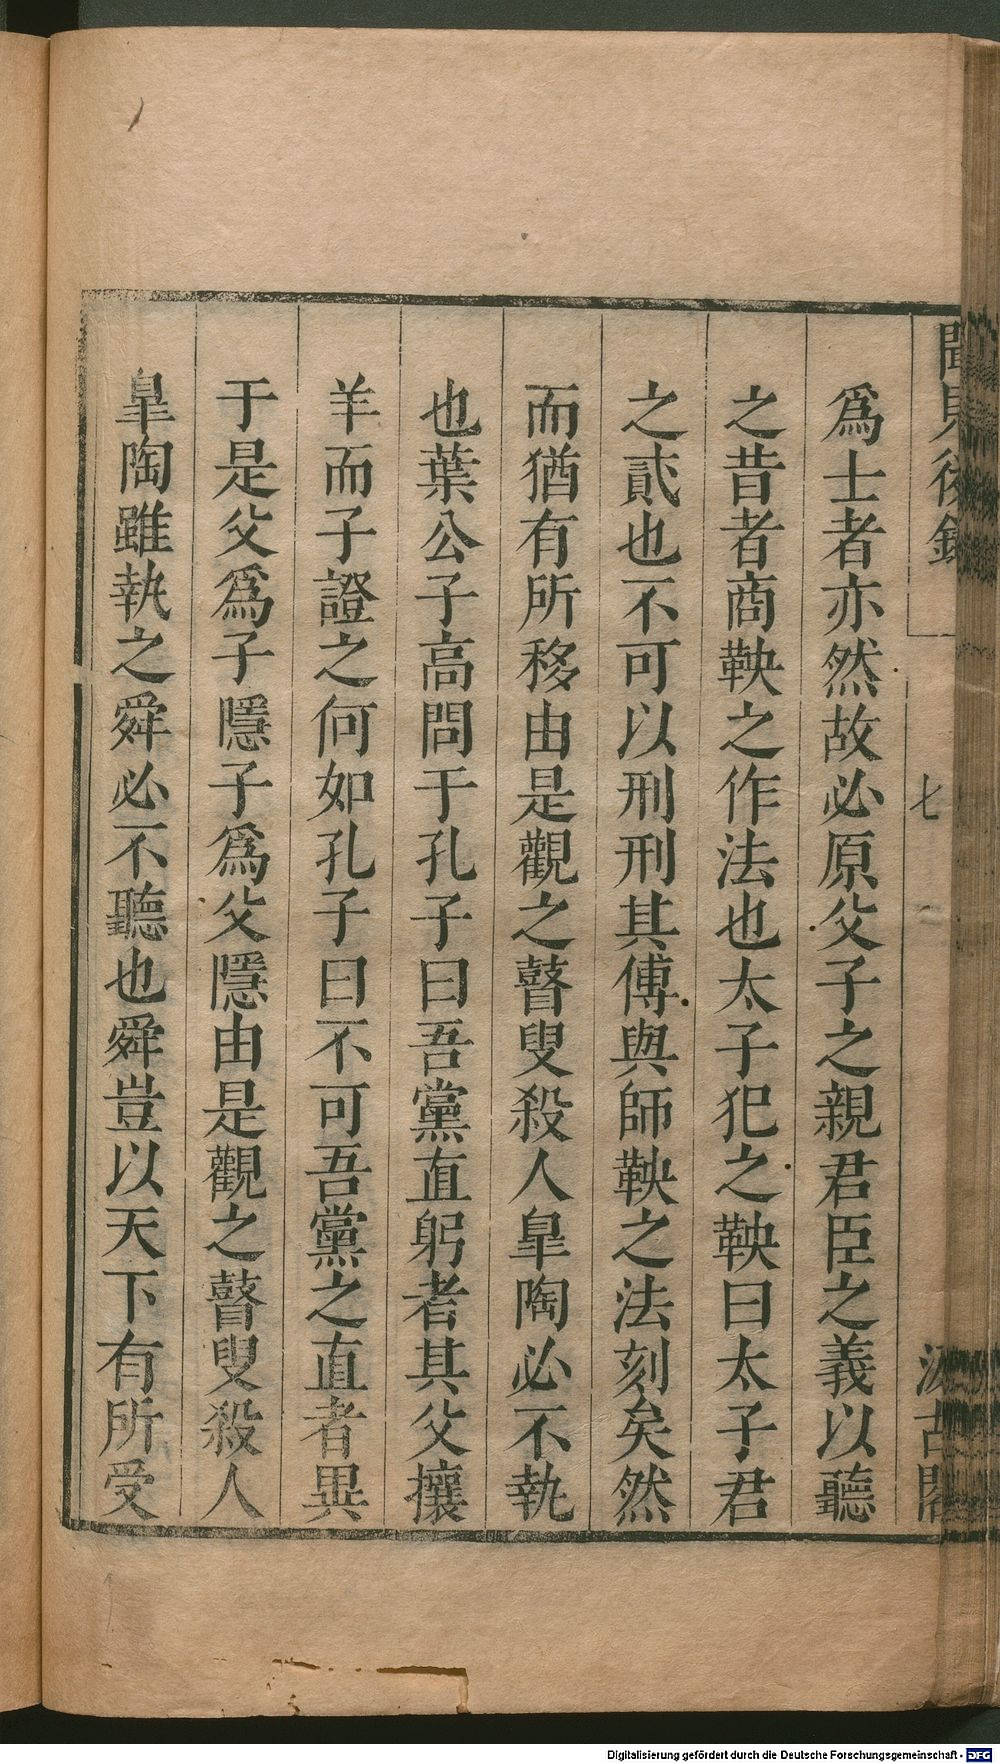 聞見後錄
七
汲古閣
爲士者亦然故必原父子之親君臣之義以聽
之昔者商鞅之作法也太子犯之鞅曰太子君
之貳也不可以刑刑其傅與師鞅之法刻矣然
而猶有所移由是觀之瞽叟殺人臯陶必不執
也葉公子高問于孔子曰吾黨直躬者其父攘
羊而子證之何如孔子曰不可吾黨之直者異
于是父爲子隱子爲父隱由是觀之瞽叟殺人
臯陶雖執之舜必不聽也舜豈以天下有所受
Digitalisierung gefördert durch die Deutsche Forschungsgemeinschaft - DFG